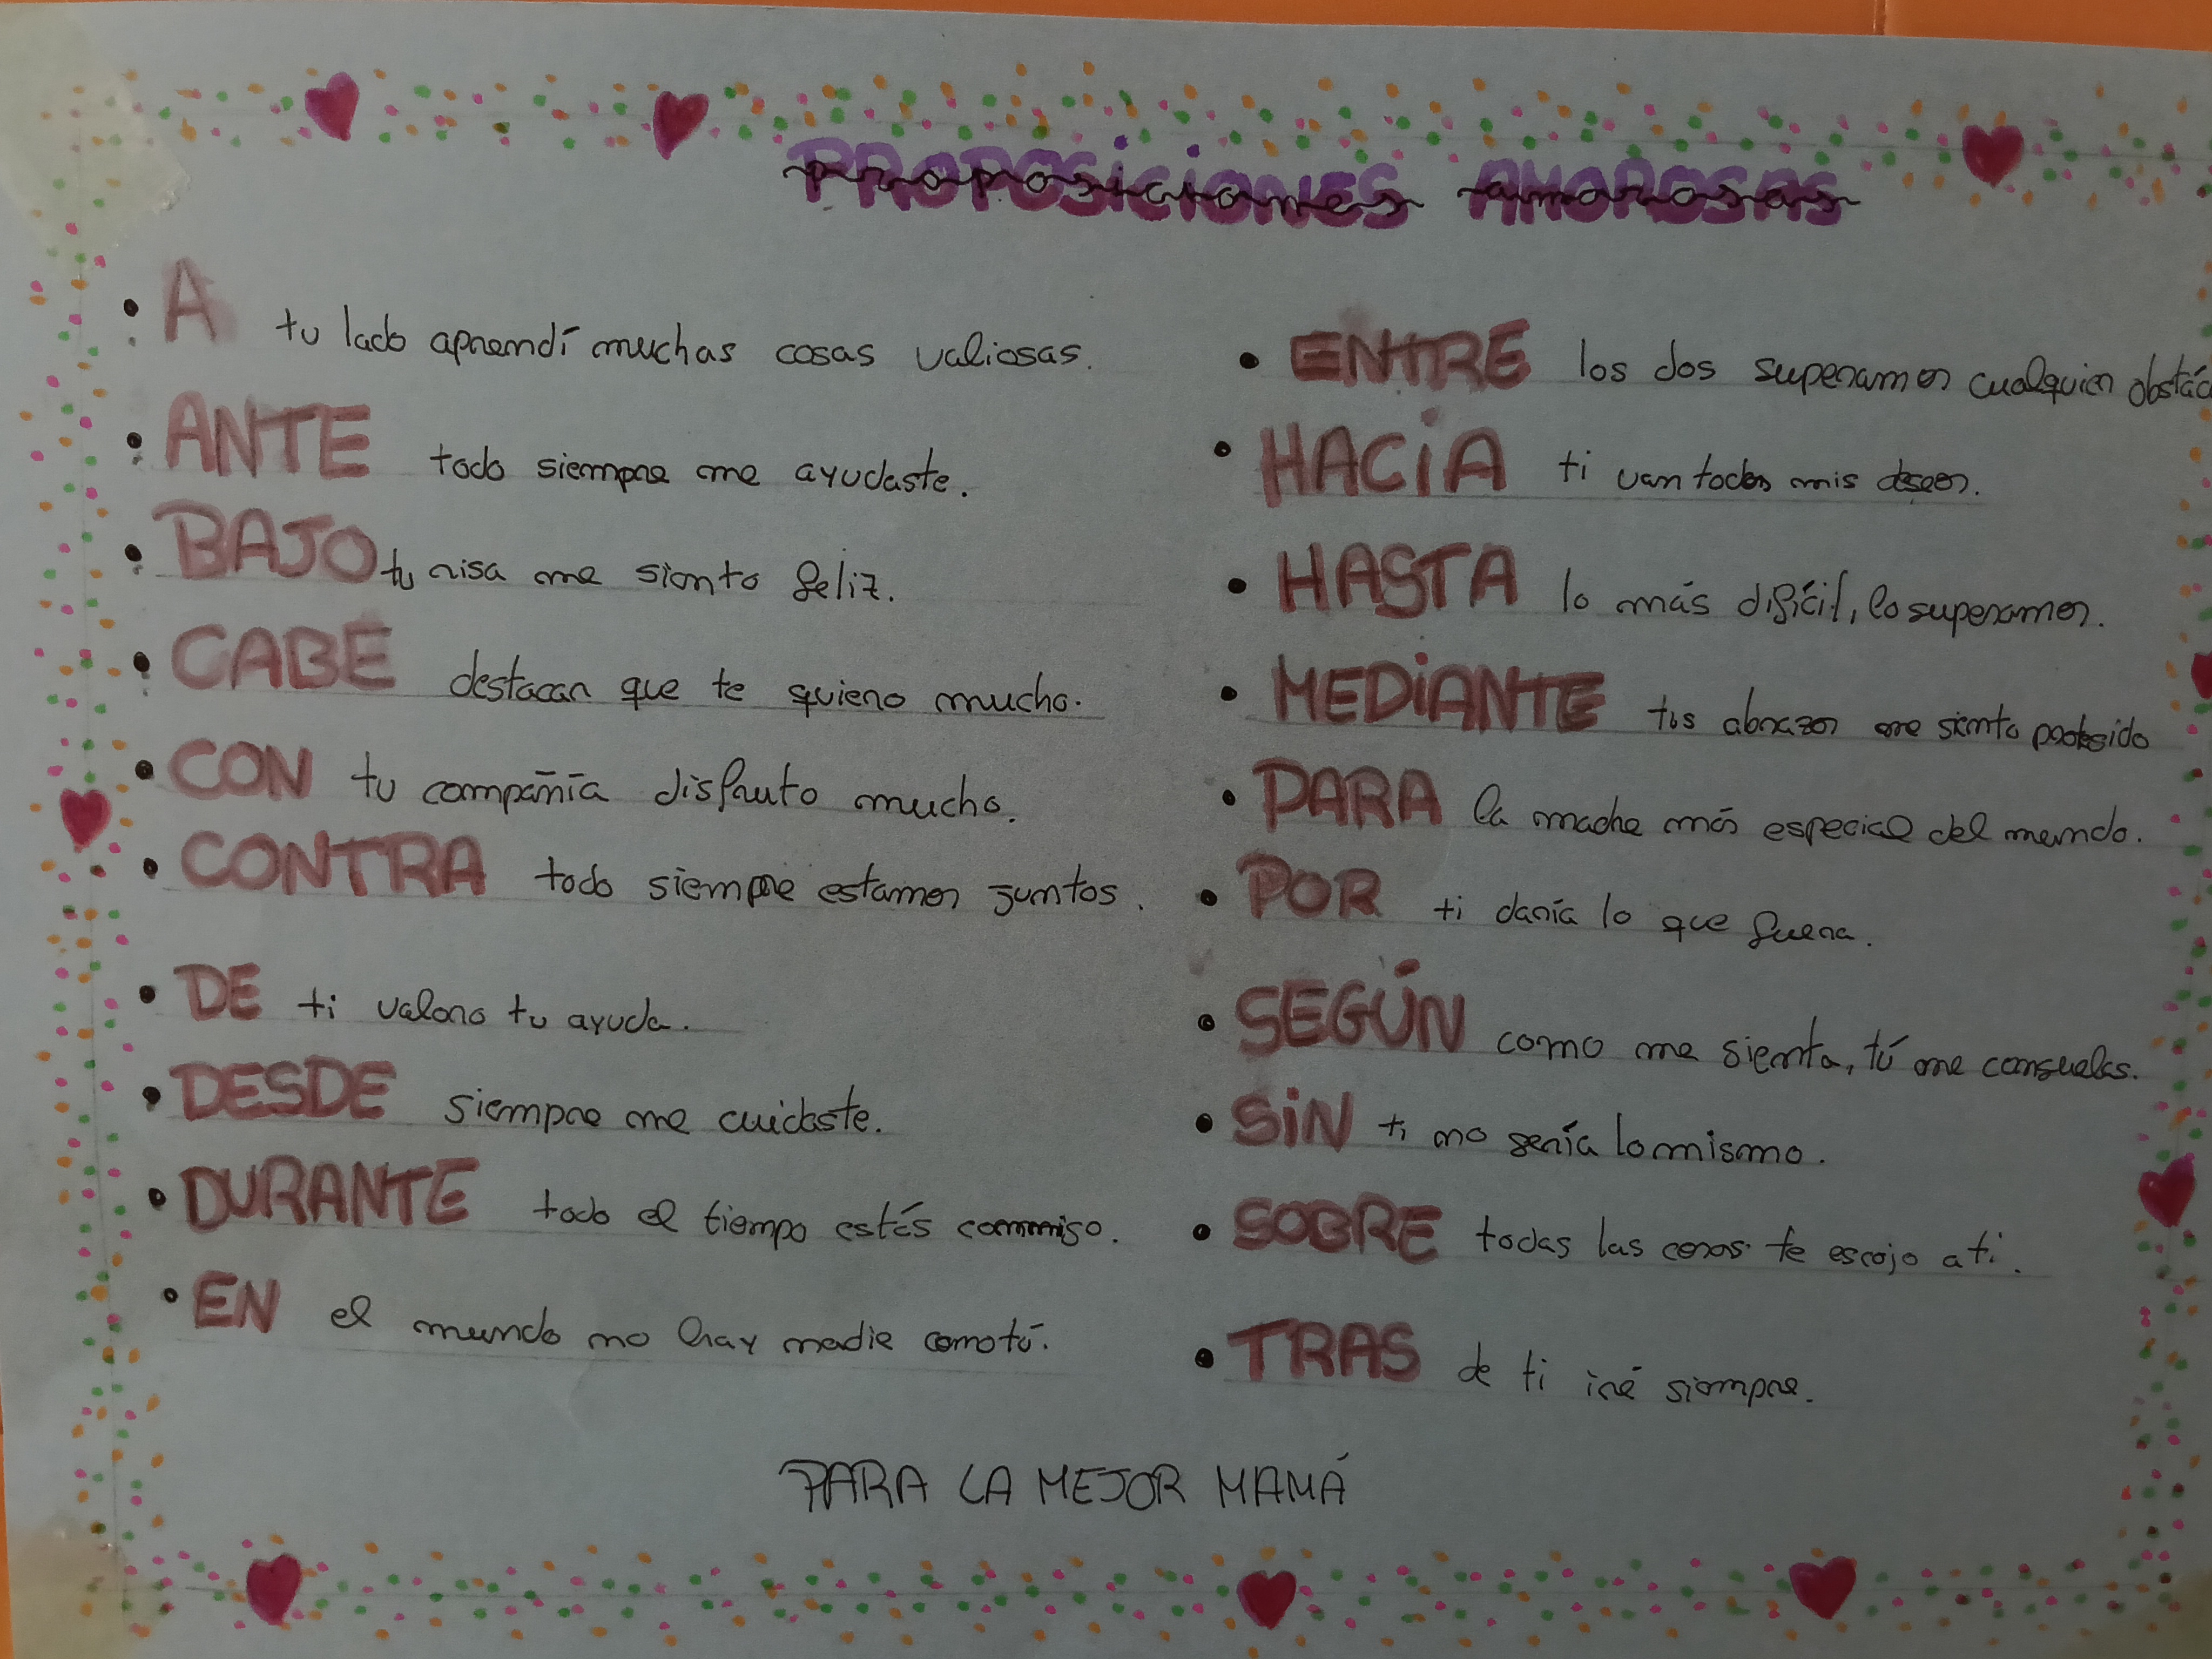 PROPOSICIONES AMOROSAS
• A tu lado aprendí muchas cosas valiosas.
• ANTE todo siempre me ayudaste.
• BAJO tu risa me siento feliz.
• CABE destacar que te quiero mucho.
• CON tu compañía disfruto mucho.
• CONTRA todo siempre estamos juntos.
• DE ti valoro tu ayuda.
• DESDE siempre me cuidaste.
• DURANTE todo el tiempo estás conmigo.
• EN el mundo no hay nadie como tú.
• ENTRE los dos superamos cualquier obstác
• HACIA ti van todos mis deseos.
• HASTA lo más difícil, lo superamos.
• MEDIANTE tus abrazos me siento
• PARA la madre más especial del mundo.
• POR ti daría lo que fuera.
• SEGÚN como me sienta, tú me consuelas.
• SIN ti no sería lo mismo.
• SOBRE todas las cosas te escojo a ti.
• TRAS de ti iré siempre.
PARA LA MEJOR MAMÁ